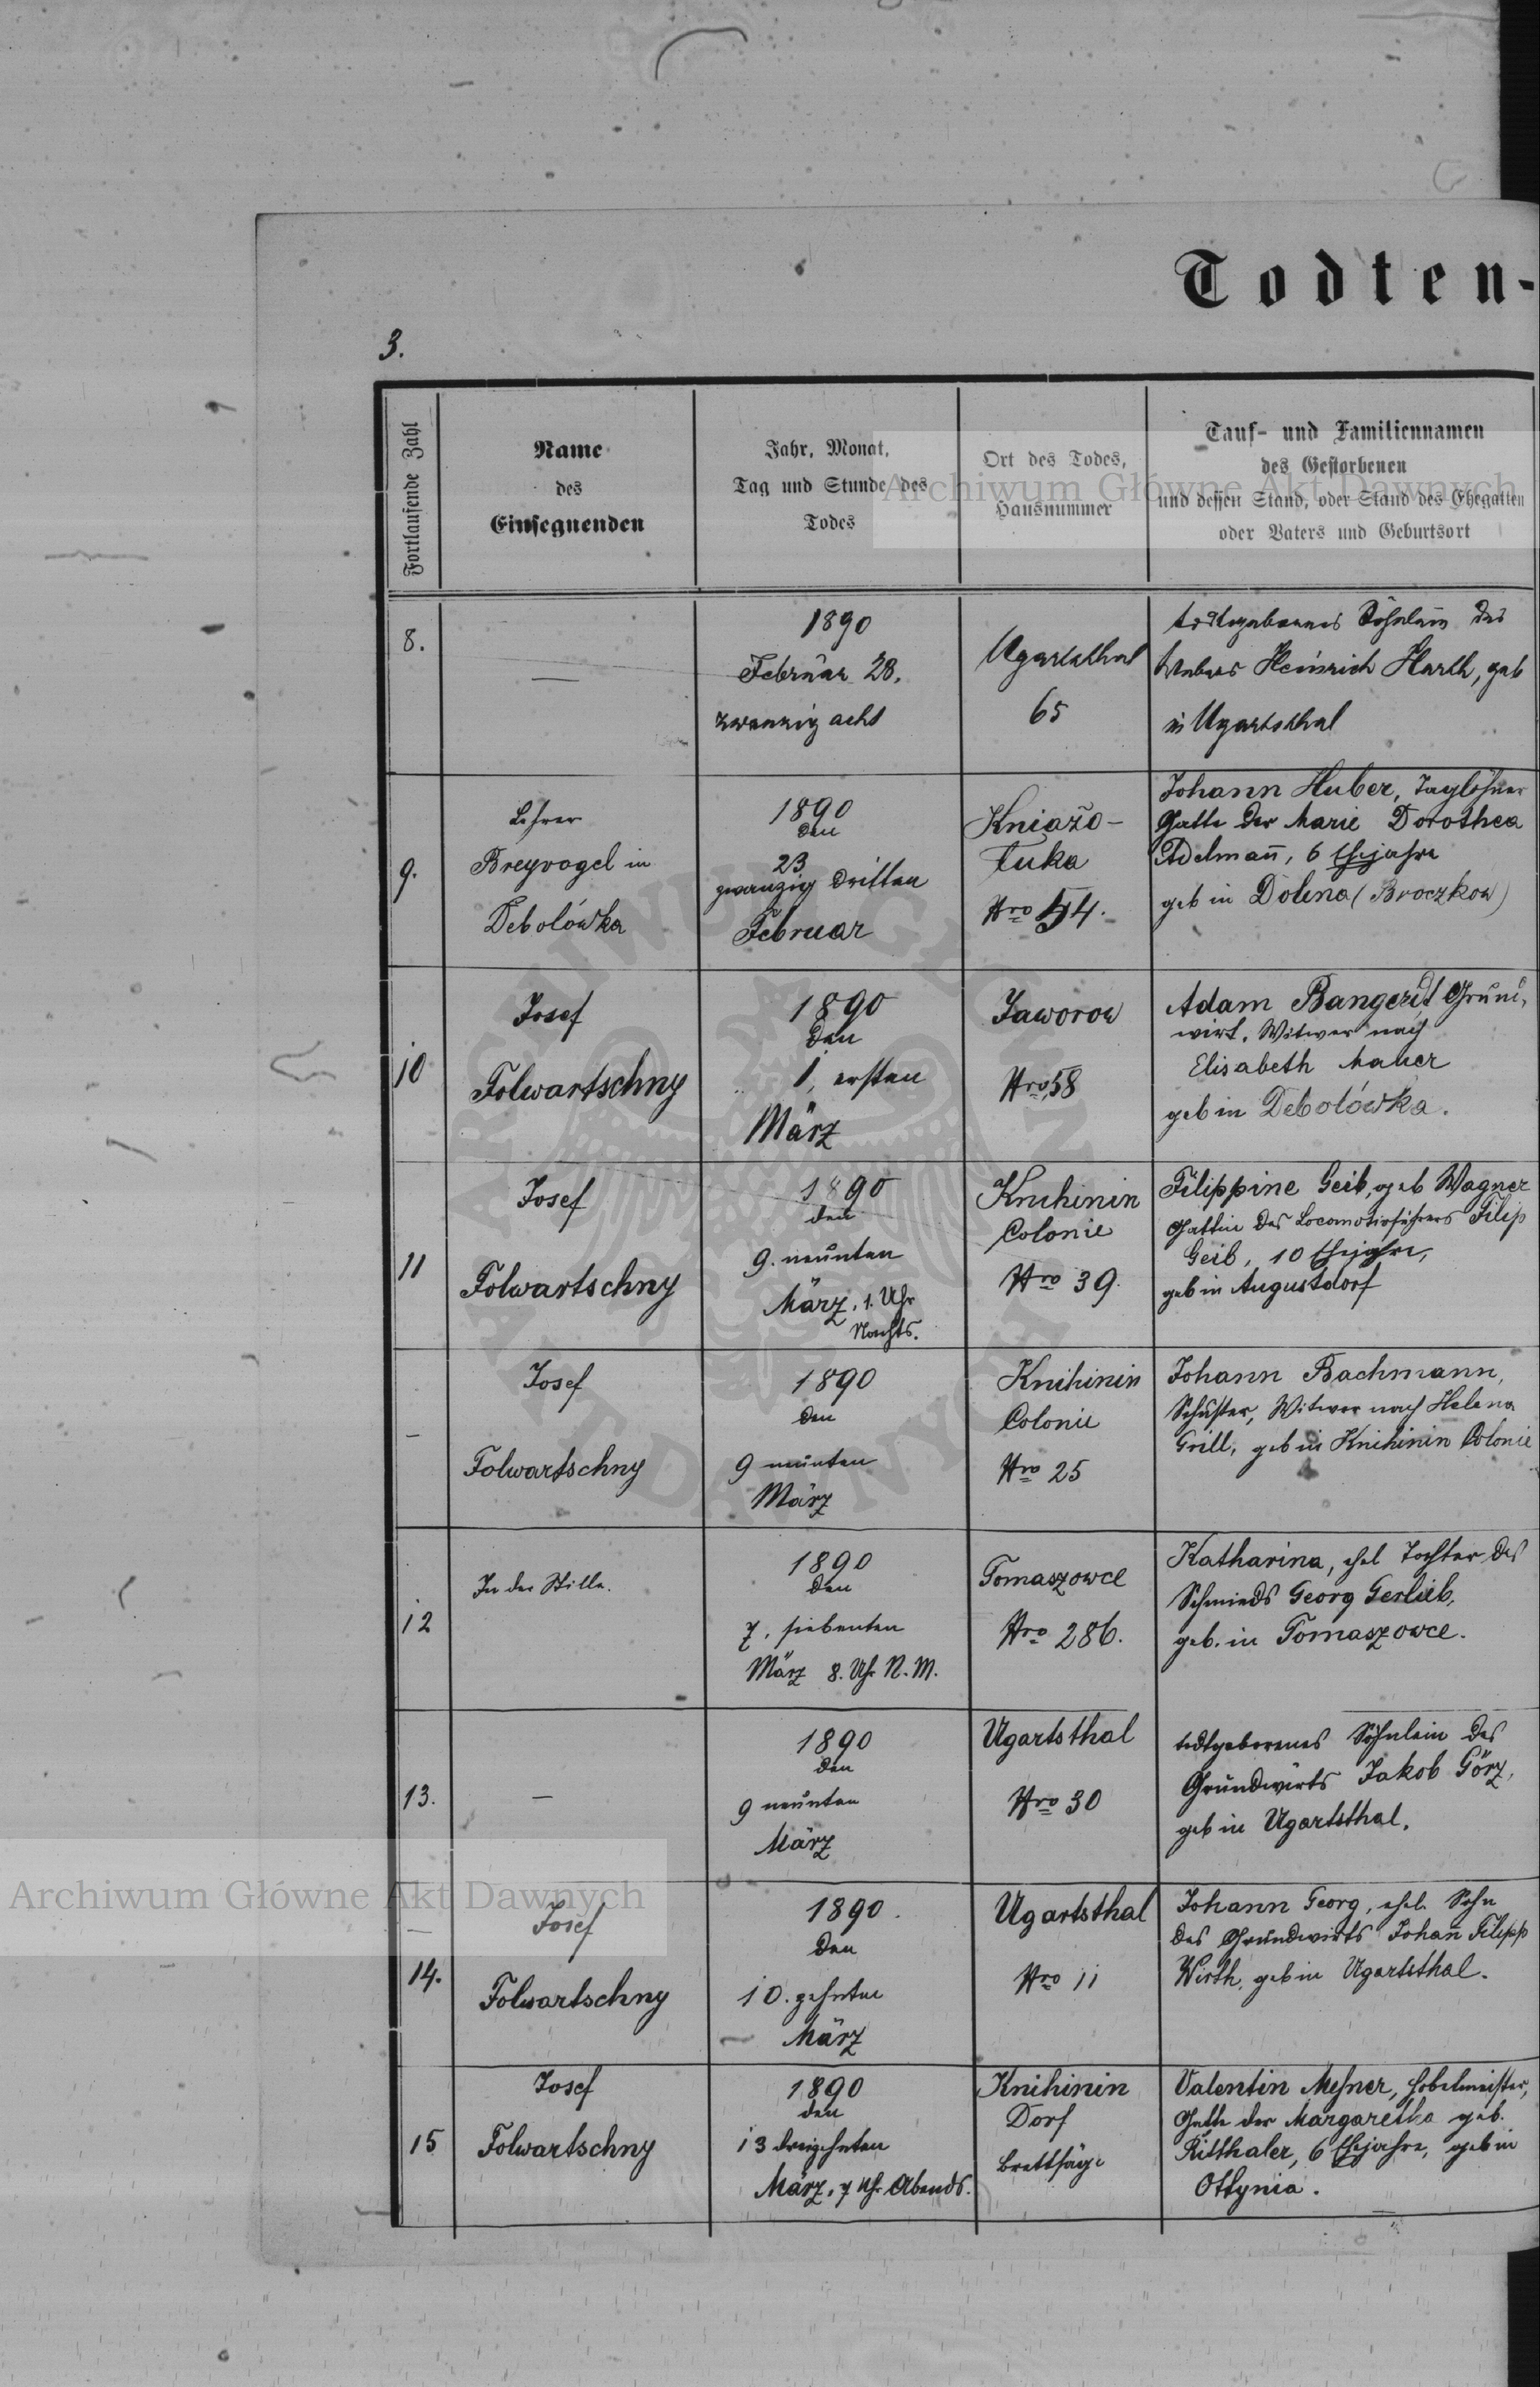 Todten-
3.
Fortlaufende Zahl
Name
des
Einsegnenden
Jahr, Monat,
Tag und Stunde des
Todes
Ort des Todes,
Hausnummer
Tauf- und Familiennamen
des Gestorbenen
und dessen Stand, oder Stand des Ehegatten
oder Vaters und Geburtsort
Archiwum Główne Akt Dawnych
8.
—
1890
Februar 28.
zwanzig acht
Ugartsthal
65
todtgeborenes Söhnlein des
Webers Heinrich Harth, geb
in Ugartsthal
9.
Lehrer
Breyvogel in
Debolówka
1890
den
23
zwanzig dritten
Februar
Kniažo-
łuka
Nro 54.
Johann Huber, Taglöhner
Gatte der Marie Dorothea
Adelmañ, 6 Ehejahre
geb in Dolina (Broczkow)
10
Josef
Folwartschny
1890
den
1. ersten
März
Jaworow
Nro 58
Adam Bangerdt Grund,
wirt, Witwer nach
Elisabeth Mauer
geb in Debolówka.
11
Josef
Folwartschny
1890
den
9. neunten
März, 1. Uhr
Nachts.
Knihinin
Colonie
Nro 39.
Filippine Geib, geb Wagner
Gattin des Locomotivführers Filip
Geib, 10 Ehejahre,
geb in Augustdorf
–
Josef
Folwartschny
1890
den
9 neunten
März
Knihinin
Colonie
Nro 25
Johann Bachmann,
Schuster, Witwer nach Helena
Grill, geb in Knihinin Colonie
12
In der Stille.
1890
den
7. siebenten
März 8. Uhr N. M.
Tomaszowce
Nro 286.
Katharina, ehel Tochter des
Schmieds Georg Gerlieb,
geb. in Tomaszowce.
13.
—
1890
den
9 neunten
März
Ugartsthal
Nro 30
todtgeborenes Söhnlein des
Grundwirts Jakob Görz,
geb in Ugartsthal.
Archiwum Główne Akt Dawnych
14.
Josef
Folwartschny
1890.
den
10. zehnten
März
Ugartsthal
Nro 11
Johann Georg, ehel. Sohn
des Grundwirts Johañ Filipp
Wirth, geb in Ugartsthal.
15
Josef
Folwartschny
1890
den
13 dreizehnten
März, 7 Uhr Abends.
Knihinin
Dorf
Brettsäge
Valentin Meßner, Hobelmeister,
Gatte der Margaretha geb.
Ritthaler, 6 Ehejahre, geb in
Ottynia.